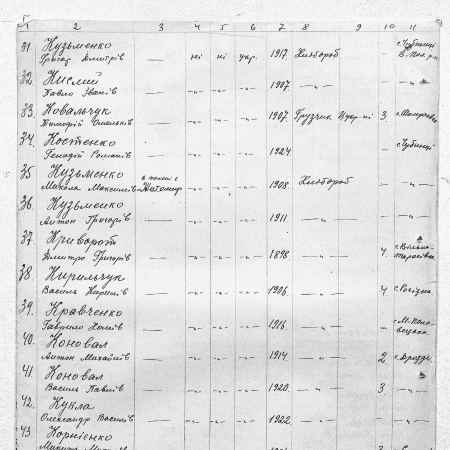 1 2 3 4 5 6 7 8 9 10 11
31. Кузьменко с. Чубинці
Григор Дмитрів — ні ні укр. 1917 Хлібороб
32. Кислий
Павло Іванів — -"- -"- -"- 1907 — " —
33. Ковальчук
Тимофій Омельків — -"- -"- -"- 1907 Грузчик Цукр-ні 3
34. Костенко
Генадій Романів — -"- -"- -"- 1924 — Чубинці
35 Кузьменко
Микола Максимів Житомир -"- -"- -"- 1908 Хлібороб — " —
36. Кузьменко
Антон Григорів — -"- -"- -"- 1911 — " — — " —
37. Криворот
Дмитро Григорів — -"- -"- -"- 1898 — " — 4
38. Кирильчук
Василь Кирилів — -"- -"- -"- 1906 — " — 4
39. Кравченко
Гаврило Хомів — -"- -"- -"- 1916 — " —
40. Коновал
Антон Михайлів — -"- -"- -"- 1914 — " — 2
41 Коновал
Василь Павлів — -"- -"- -"- 1920 — " — 3 — " —
42. Кукла
Олександр Василів — -"- -"- -"- 1922 — " — — " —
43. Корнієнко